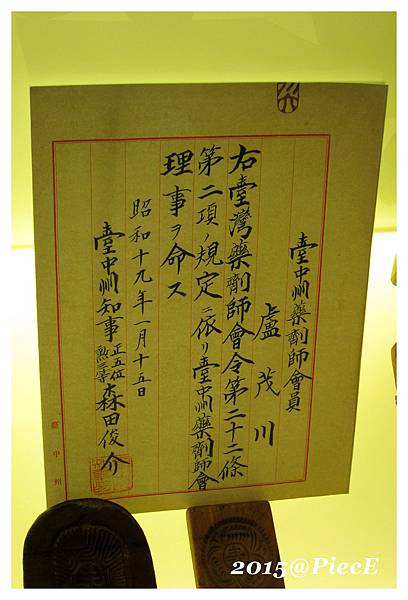 臺中州藥劑師會員
盧茂川
右臺灣藥劑師會令第二十二條
第二項ノ規定ニ依リ臺中州藥劑師會
理事ヲ命ス
昭和十九年一月十五日
臺中州知事正五位勲三等森田俊介
臺中州
2015@PiecE